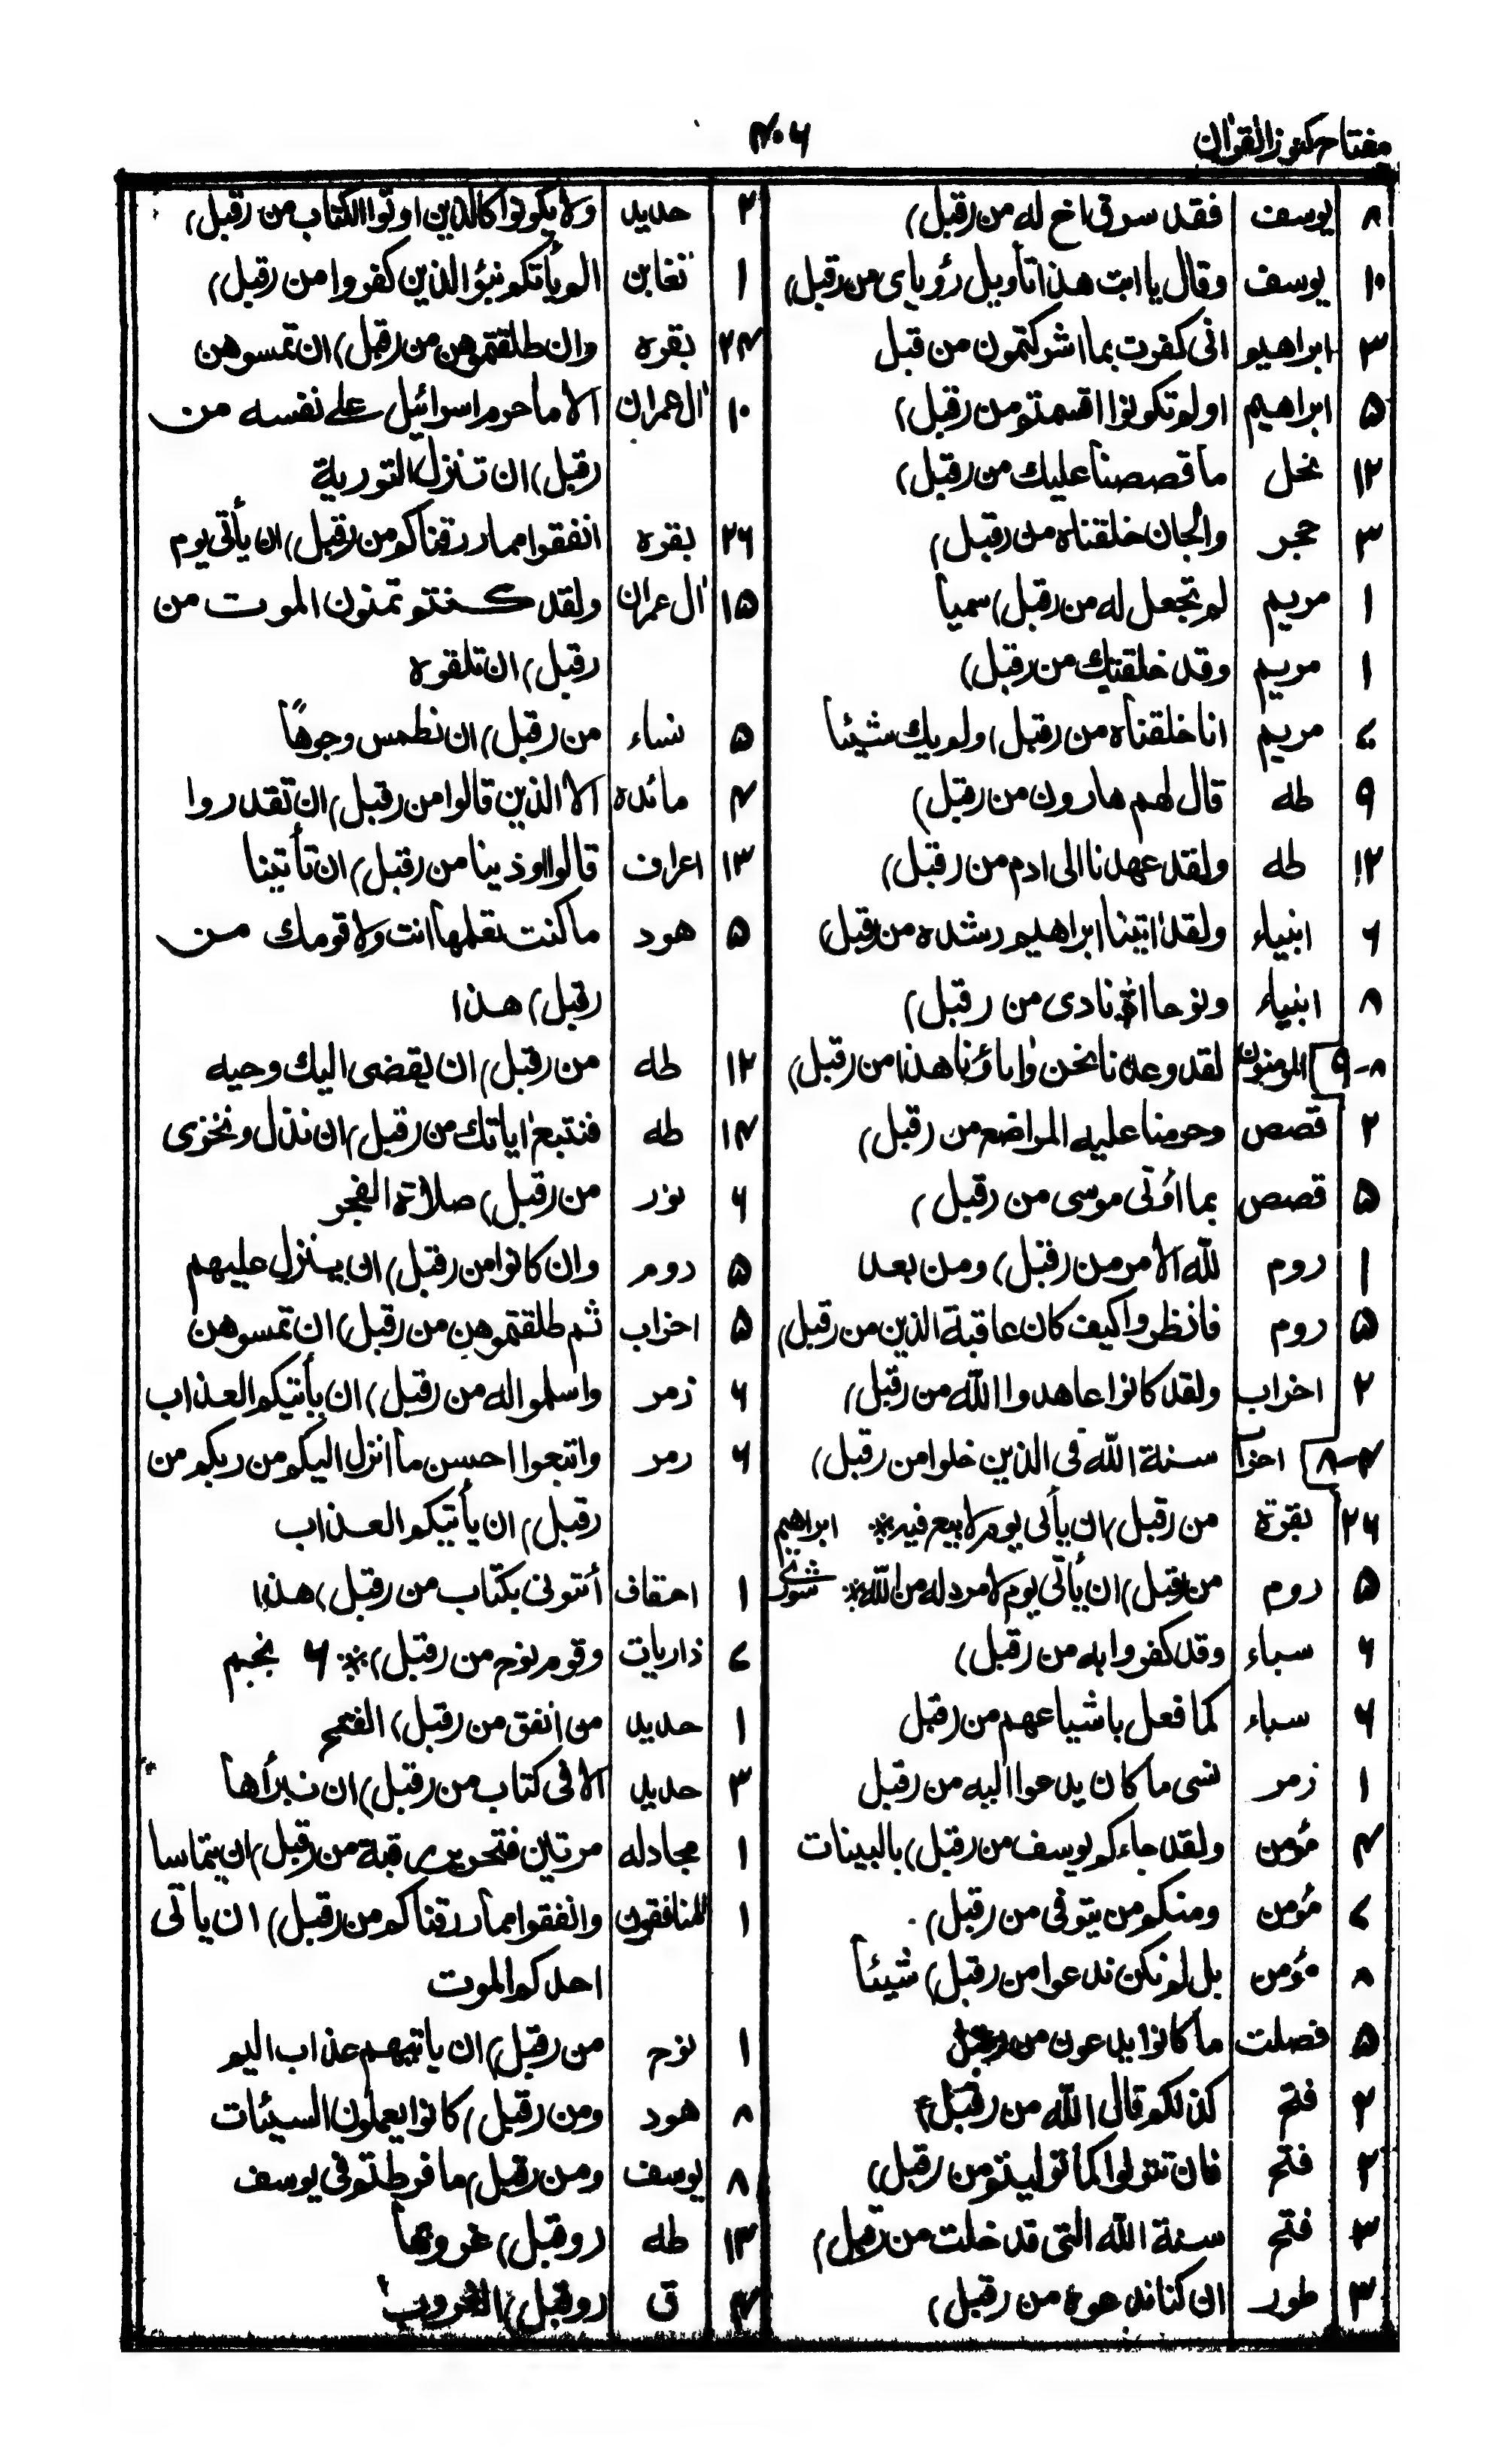 مفتاح كنوز القراٰن
۴۰۶
۸ يوسف فقد سرق اخ له من (قبل)
۱۰ يوسف وقال يا ابت هذا تأويل رؤياى من (قبل)
۳ ابراهيم انى كفرت بما اشركتمون من قبل
۵ ابراهيم اولم تكونوا اقسمتم من (قبل)
۱۲ نحل ما قصصنا عليك من (قبل)
۳ حجر والجان خلقناه من (قبل)
۱ مريم لم نجعل له من (قبل) سميا
۱ مريم وقد خلقتك من (قبل)
۷ مريم انا خلقناه من (قبل) ولم يك شيئا
۹ طه قال لهم هارون من (قبل)
۱۲ طه ولقد عهدنا الى ادم من (قبل)
۶ انبياء ولقد اتينا ابراهيم رشده من (قبل)
۸ انبياء ونوحا اذ نادى من (قبل)
۸-۹ المومنون لقد وعدنا نحن واٰباؤنا هذا من (قبل)
۲ قصص وحرمنا عليه المراضع من (قبل)
۵ قصص بما اُوتى موسى من (قبل)
۱ روم لله الامر من (قبل) ومن بعد
۵ روم فانظروا كيف كان عاقبة الذين من (قبل)
۲ احزاب ولقد كانوا عاهدوا الله من (قبل)
۴-۸ احزا سنة الله فى الذين خلوا من (قبل)
۲۶ بقرة من (قبل) ان يأتى يوم لا بيع فيه * ابراهيم
۵ روم من (قبل) ان يأتى يوم لا مرد له من الله * شورى
۶ سباء وقد كفروا به من (قبل)
۶ سباء كما فعل باشياعهم من (قبل
۱ زمر نسى ما كان يدعوا اليه من (قبل
۴ مؤمن ولقد جاءكم يوسف من (قبل) بالبينات
۷ مؤمن ومنكم من يتوفى من (قبل)
۸ مؤمن بل لم نكن ندعوا من (قبل) شيئا
۵ فصلت ما كانوا يدعون من (قبل
۲ فتح كذلكم قال الله من (قبل)
۲ فتح فان تتولوا كما توليتم من (قبل)
۳ فتح سنة الله التى قد خلت من (قبل)
۳ طور ان كنا ندعوه من (قبل)
۲ حديد ولا يكونوا كالذين اوتوا الكتاب من (قبل)
۱ تغابن الم يأتكم نبؤ الذين كفروا من (قبل)
۲۴ بقره وان طلقتموهن من (قبل) ان تمسوهن
۱۰ اٰل عمران الا ما حرم اسرائيل على نفسه من
(قبل) ان تنزل التورية
۲۶ بقره انفقوا مما رزقناكم من (قبل) ان يأتى يوم
۱۵ اٰل عمران ولقد كنتم تمنون الموت من
(قبل) ان تلقوه
۵ نساء من (قبل) ان نطمس وجوهًا
۴ مائده الا الذين قالوا من (قبل) ان تقدروا
۱۳ اعراف قالوا اوذينا من (قبل) ان تأتينا
۵ هود ما كنت تعلمها انت ولا قومك من
(قبل) هذا
۱۲ طه من (قبل) ان يقضى اليك وحيه
۱۴ طه فنتبع اٰياتك من (قبل) ان نذل ونخزى
۶ نور من (قبل) صلاة الفجر
۵ روم وان كانوا من (قبل) ان ينزل عليهم
۵ احزاب ثم طلقتموهن من (قبل) ان تمسوهن
۶ زمر واسلموا له من (قبل) ان يأتيكم العذاب
۶ رمر واتبعوا احسن ما انزل اليكم من ربكم من
(قبل) ان يأتيكم العذاب
۱ احقاف أئتونى بكتاب من (قبل) هذا
۷ ذاريات وقوم نوح من (قبل) * ۶ نجم
۱ حديد من انفق من (قبل) الفتح
۳ حديد الا فى كتاب من (قبل) ان نبرأها
۱ مجادله مرتين فتحرير رقبة من (قبل) ان يتماسا
۱ المنافقون وانفقوا مما رزقناكم من (قبل) ان يأتى
احدكم الموت
۱ نوح من (قبل) ان ياتيهم عذاب اليم
۸ هود ومن (قبل) كانوا يعملون السيئات
۸ يوسف ومن (قبل) ما فرطتم فى يوسف
۱۳ طه (وقبل) غروبها
۴ ق (وقبل) الغروب